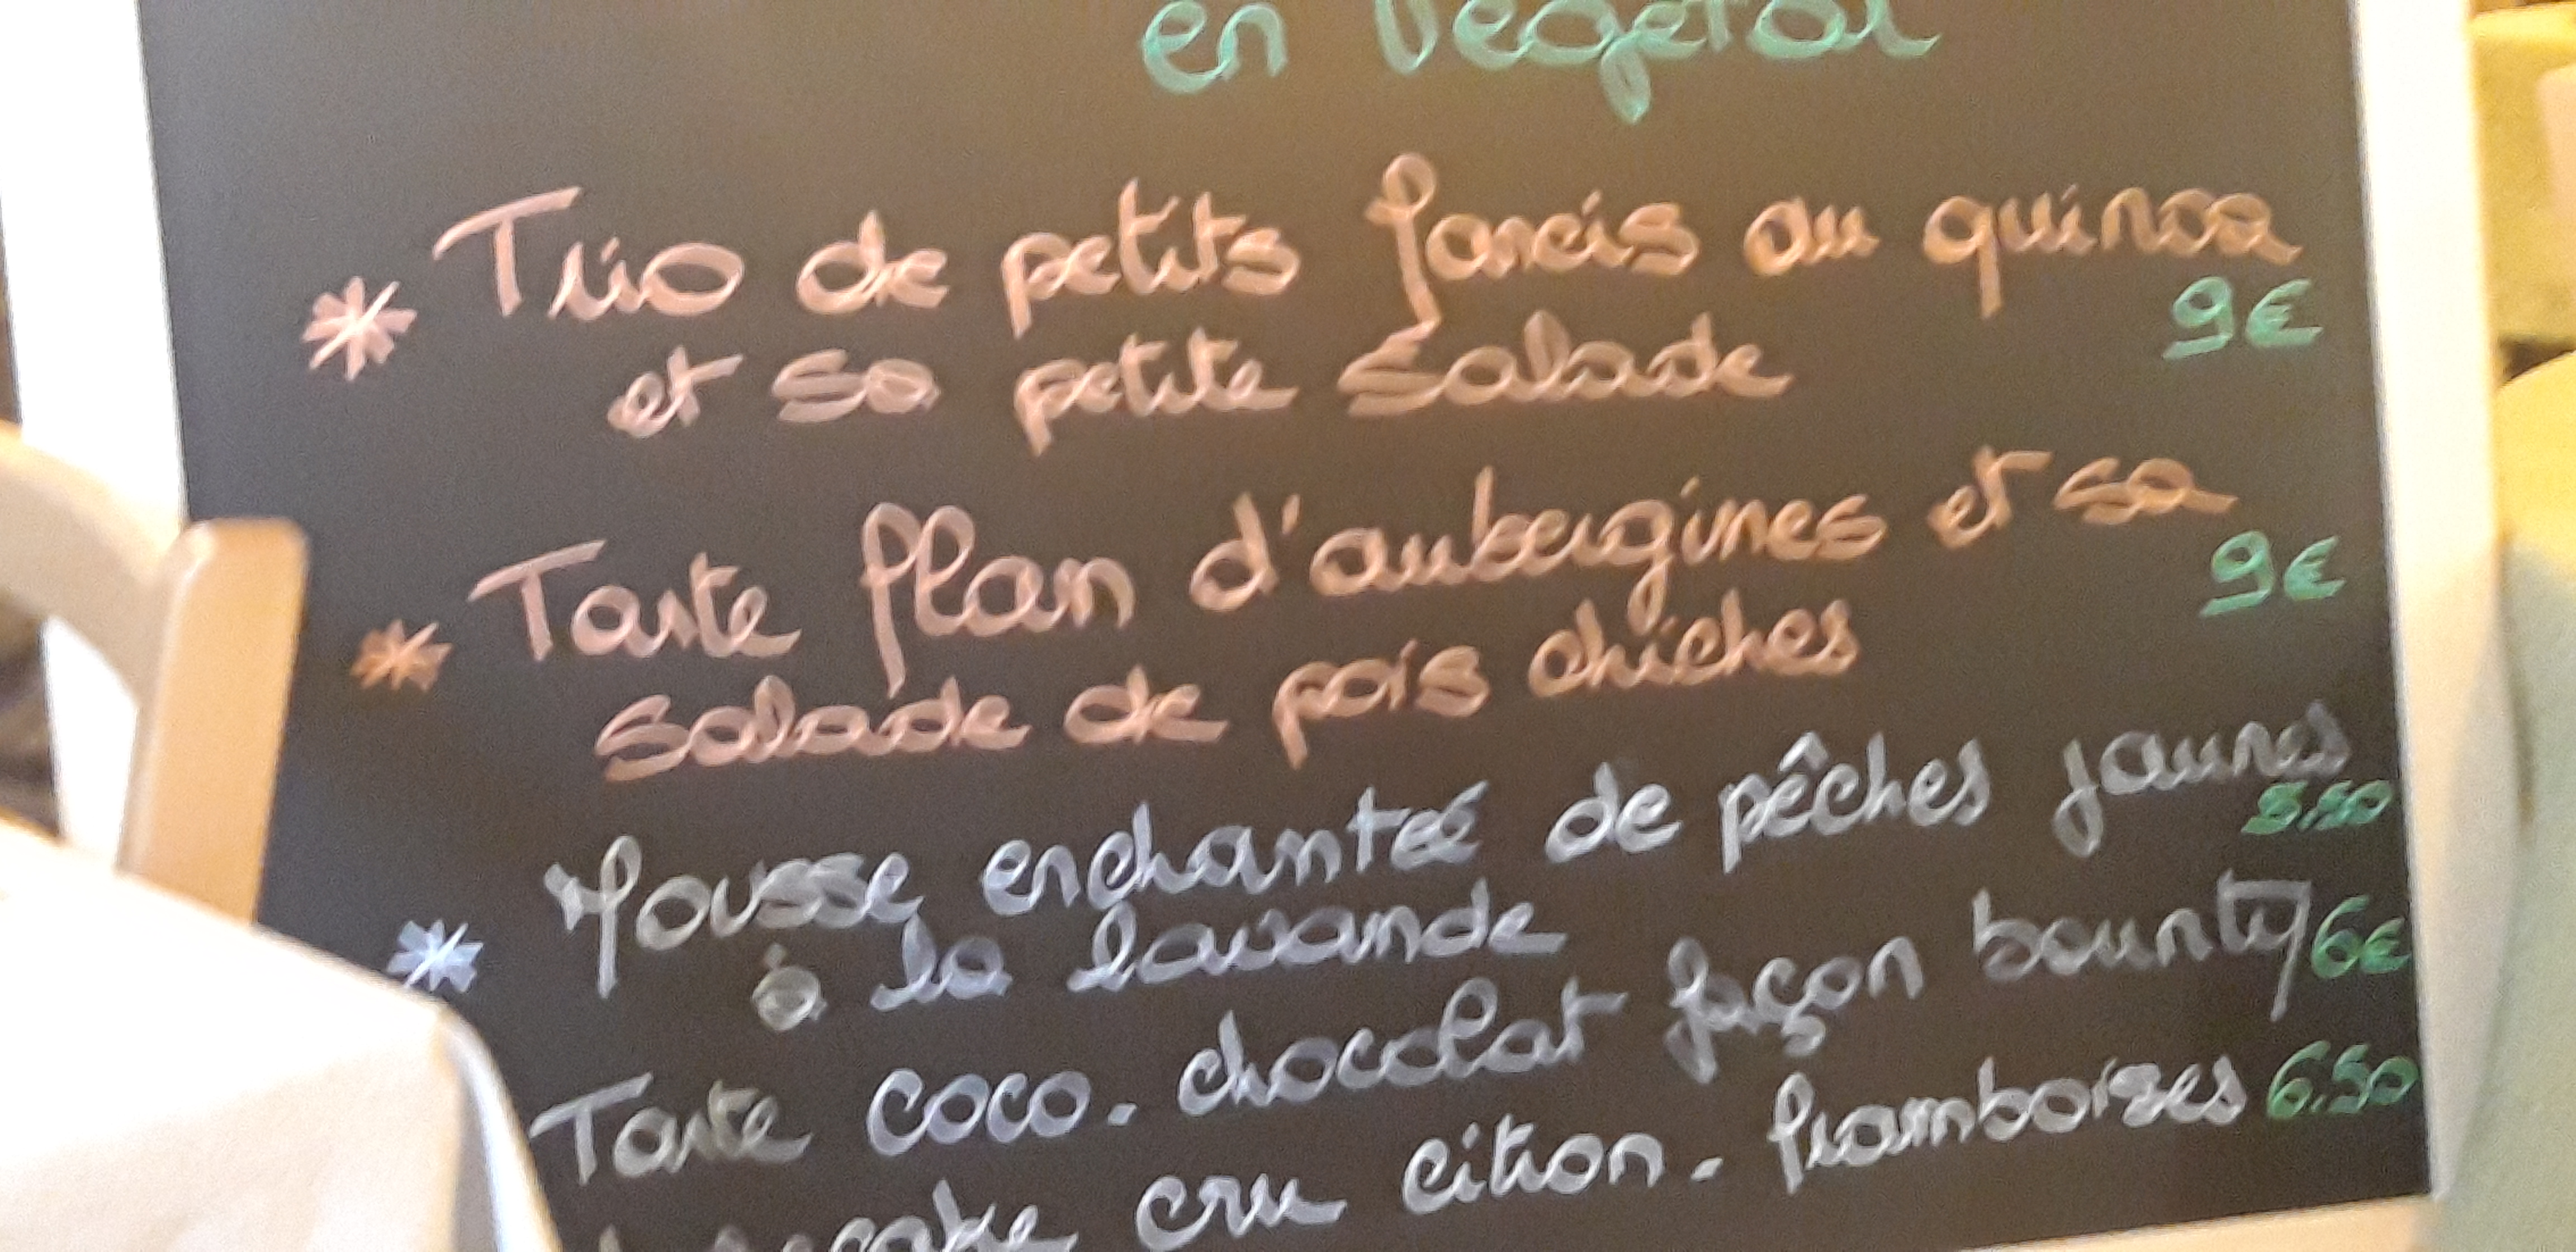 en Végétal
* Trio de petits farcis au quinoa
9€
et sa petite salade
* Tarte flan d'aubergines et sa
9€
salade de pois chiches
* Mousse enchantée de pêches jaunes
5.50
à la lavande
Tarte coco. chocolat façon bounty 6€
cru citron. framboises 6.50